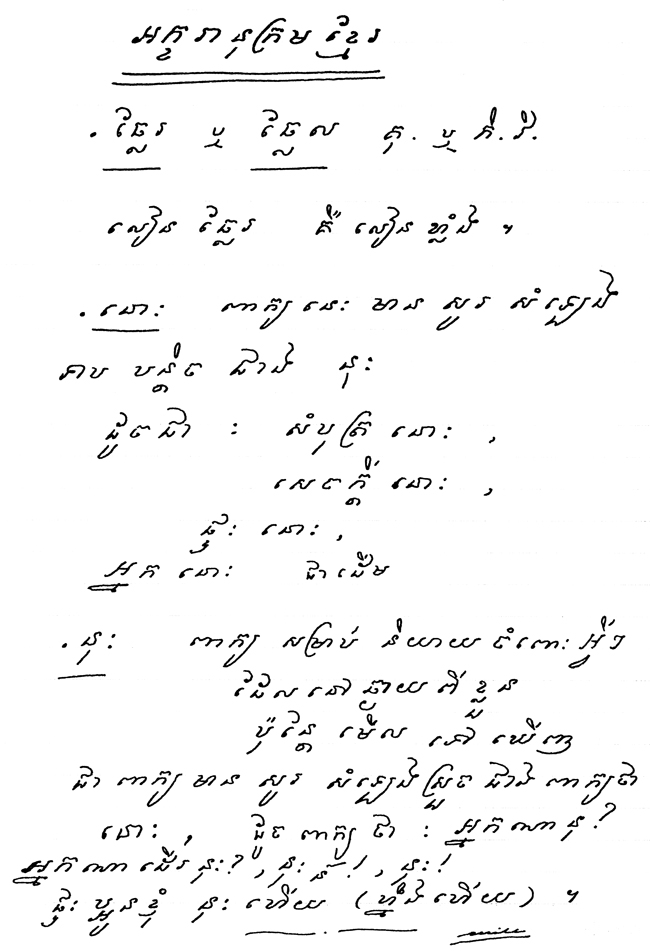 អក្ខរានុក្រមខ្មែរ
. ឆ្លែរ ឬ ឆ្លែល គុ. ឬ កិ. វិ.
លឿន ឆ្លែរ គឺ លឿន ខ្លាំង ។
. នោះ ពាក្យ នេះ មាន សូរ សំឡេង
ទាប បន្តិច ជាង នុះ
ដូចជា : សំបុត្រ នោះ ,
សេចក្តី នោះ ,
ផ្ទះ នោះ ,
អ្នក នោះ ជាដើម
. នុះ ពាក្យ សម្រាប់ និយាយ ចំពោះ អ្វីៗ
ដែល នៅ ឆ្ងាយ ពី ខ្លួន
ប៉ុន្តែ មើល ទៅ ឃើញ
ជា ពាក្យ មាន សូរ សំឡេង ស្រួច ជាង ពាក្យ ថា
នោះ , ដូច ពាក្យ ថា : អ្នកណា នុ៎ ?
អ្នកណា ដើរ នុះ ? , នុះ ន៎ ! , នុះ !
ផ្ទះ ប្អូន ខ្ញុំ នុះ ហើយ (ហ្នឹង ហើយ) ។